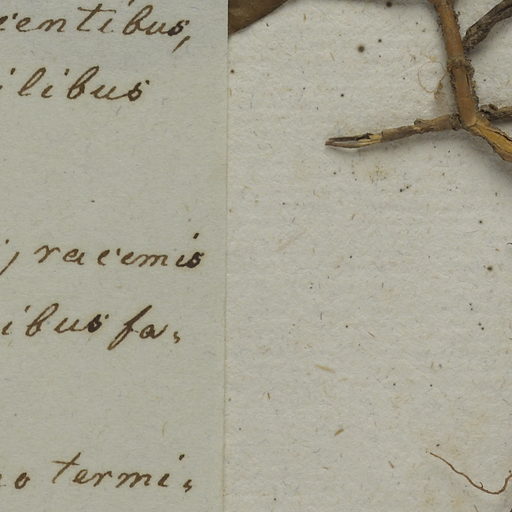 centibus,
ilibus
, racemis
ibus fa,
o termi,